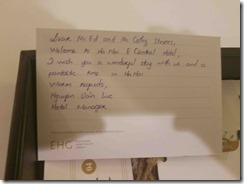 Dear Mr Ed and Ms Cathy
Welcome to Ha Noi E Central Hotel,
I wish you a wonderful stay with us and a
fantastic time in Ha Noi
Warm regards,
Nguyen Van Luc
Hotel Manager
EHG